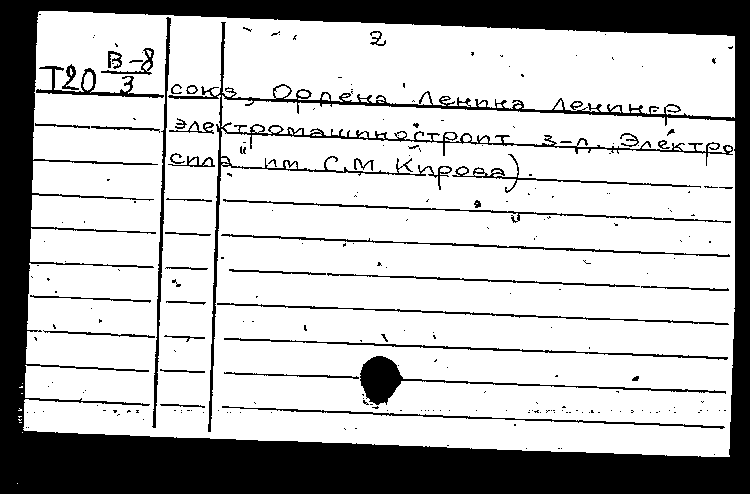 2
Т20 В-8
3
союз, Ордена Ленина Ленингр.
электромашиностроит з-д. „Электро
сила" им. С.М. Кирова).